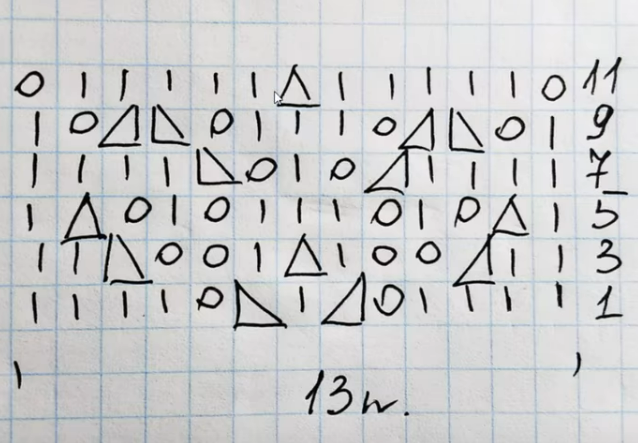 O | | | | | △ | | | | | O 11
| O ◿ ◺ O | | | O ◿ ◺ O | 9
| | | | ◺ O | O ◿ | | | | 7
| △ O | O | | | O | O △ | 5
| | ◺ O O | △ | O O ◿ | | 3
| | | | O ◺ | ◿ O | | | | 1
13 п.